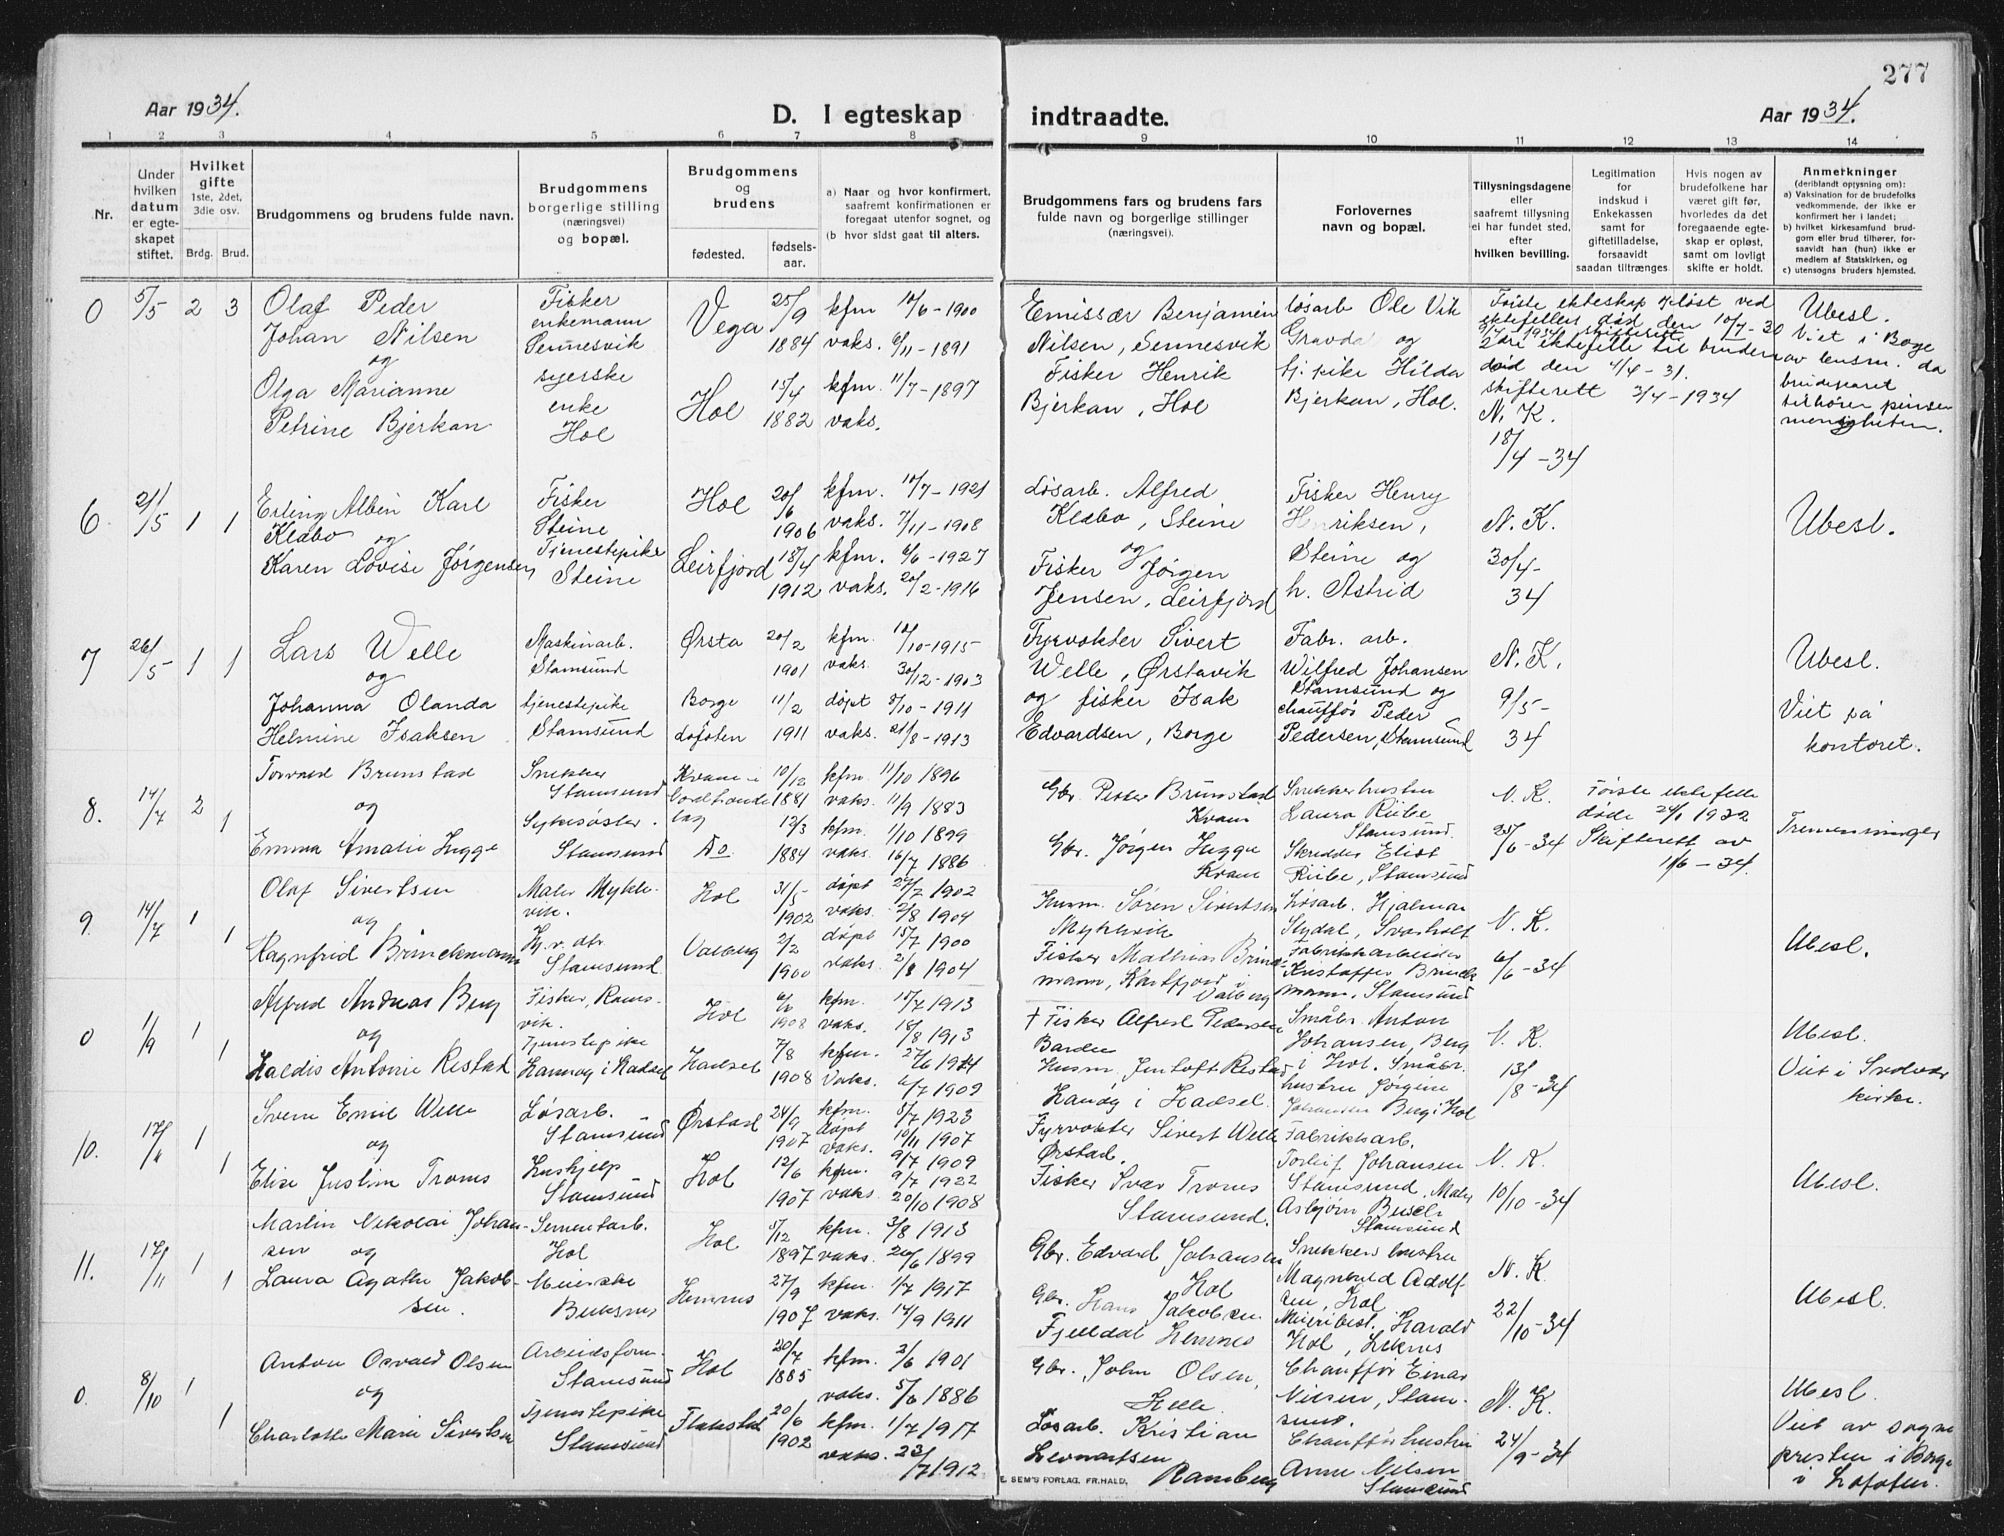 277
Aar 1934.
D. I egteskap
indtraadte.
Aar 1934.
1 2 3 4 5 6 7 8 9 10 11 12 13 14
Nr.
Under hvilken datum er egteskapet stiftet.
Hvilket gifte 1ste, 2det, 3die osv.
Brdg. Brud.
Brudgommens og brudens fulde navn.
Brudgommens borgerlige stilling (næringsvei) og bopæl.
Brudgommens og brudens
fødested.
fødsels-aar.
a) Naar og hvor konfirmert, saafremt konfirmationen er foregaat utenfor sognet, og
(b hvor sidst gaat til alters.
Brudgommens fars og brudens fars fulde navn og borgerlige stillinger (næringsvei).
Forlovernes navn og bopæl.
Tillysningsdagene eller saafremt tillysning ei har fundet sted, efter hvilken bevilling.
Legitimation for indskud i Enkekassen samt for giftetilladelse, forsaavidt saadan tiltrænges
Hvis nogen av brudefolkene har været gift før, hvorledes da det foregaaende egteskap er opløst, samt om lovligt skifte er holdt.
Anmerkninger (deriblandt oplysning om):
a) Vaksination for de brudefolks vedkommende, der ikke er konfirmert her i landet;
b) hvilket kirkesamfund brudgom eller brud tilhører, forsaavidt han (hun) ikke er medlem af Statskirken, og
c) utensogns bruders hjemsted.
0 5/5 2 3
Olaf Peder
Johan Nilsen
og
Olga Marianne
Petrine Bjerkan
Fisker
enkemann
Sennesvik
syerske
enke
Hol
Vega 25/9 1884
Hol 15/4 1882
kfm 10/6-1900
vaks. 6/11-1891
kfm. 11/7-1897
vaks.
Emissær Benjamin
Nilsen, Sennesvik
Fisker Henrik
Bjerkan, Hol
løsarb Ole Vik
Gravdal og
tj. pike Hilda
Bjerkan, Hol.
Første ekteskap opløst ved
ektefellers død den 10/7-30
3/4-1934 skifterett
2dre ektefelle til bruden
død den 4/4-31.
skifterett 3/4-1934
N. K.
18/4-34
Ubesl.
Viet i Borge
av lensm. da
brudeparet
tilhører pinse
menigheten.
6 21/5 1 1
Erling Albin Karl
Klæbo og
Karen Lovise Jørgensen
Fisker
Steine
Tjenestepike
Steine
Hol 20/6 1906
Leirfjord 18/4 1912
kfm. 10/7-1921
vaks. 7/11-1908
kfm. 6/6-1927
vaks. 20/2-1916
Løsarb. Alfred
Klæbo, Steine
og
Fisker Jørgen
Jensen, Leirfjord
Fisker Henry
Henriksen,
Steine og
h. Astrid
N. K.
30/4-
34
Ubesl.
7 26/5 1 1
Lars Welle
og
Johanna Olanda
Helmine Isaksen
Maskinarb.
Stamsund
tjenestepike
Stamsund
Ørsta 20/2 1901
Borge 11/2
Lofoten 1911
kfm. 10/10-1915
vaks. 30/12-1903
døpt 8/10-1911
vaks. 21/8-1913
Fyrvokter Sivert
Welle, Ørstavik
og fisker Isak
Edvardsen, Borge
Fabr. arb.
Wilfred Johansen
Stamsund og
chauffør Peder
Pedersen, Stamsund
N. K.
9/5-
34
Ubesl.
Viet på
kontoret.
8. 14/7 2 1
Torvald Brunstad
og
Emma Amalie Hugge
Snekker
Stamsund
Sykesøster.
Stamsund
Kvam i
10/12 1881
Do 12/3 1884
kfm. 11/10 1896
vaks. 11/9 1883
kfm. 1/10 1899
vaks. 16/7 1886
Gbr. Petter Brunstad
Kvam
Gbr. Jørgen Hugge
Kvam
Snekkerhustru
Laura Ribe
Stamsund.
Skredder Eliot
Ribe, Stamsund
N. K.
25/6-34
Første ektefelle
døde 24/1 1932
Skifterett av
1/6-34.
Tremenninger
9. 14/7 1 1
Olaf Sivertsen
og
Ragnfrid Brinckmann
Maler Mykle-
vik.
Hj. v. dtr
Stamsund.
Hol 31/5-1902
Valberg 2/2 1900
døpt 27/7 1902
vaks. 2/8 1904
døpt 15/7 1900
vaks. 2/8 1904
Husm. Søren Sivertsen
Myklevik
Fisker Mathias Brinck-
mann, Kartfjord i
Valberg
Løsarb. Hjalmar
Stydal, Svarholt
Fabrikkarbeider
Kristoffer Brinck
mann, Stamsund
N. K.
6/6-34
Ubesl.
0 1/9 1 1
Alfred Andreas Berg
og
Haldis Antonie Restad
Fisker, Rams-
vik.
Tjenestepike
Hannøy i Hadsel
Hol 1908
Hadsel 7/8 1908
kfm. 15/7 1913
vaks. 18/8 1913
kfm. 27/6 1914
Vaks. 6/7 1909
† Fisker Alfred Pedersen
Husm. Jentoft Ristad
Hanøy i Hadsel.
Småbr. Anton
Johansen, Berg
i Hol. Småbr.
hustru Jørgine
Johansen Berg i Hol
N. K.
13/8-34
Ubesl.
Viet i Svolvær
kirke.
10. 17/6 1 1
Svein Emil Welle
og
Elise Justine Troms
Løsarb.
Stamsund
Hushjelp
Stamsund
Ørstad 24/9 1907
Hol 12/6 1907
kfm. 5/7 1923
døpt 10/11 1907
vaks. 9/7 1909
kfm. 9/7 1922
vaks. 20/10 1908
Fyrvokter Sivert Welle
Ørstad.
Fisker Svar Troms
Stamsund.
Fabrikkarb.
Torleif Johansen
Stamsund. Maler
Asbjørn Busch
Stamsund
N. K.
10/10-34
Ubesl.
11. 17/11 1 1
Martin Nikolai Johan-
sen og
Laura Agathe Jakob-
sen.
Sementarb.
Hol
Meierske
Buksnes
Hol 5/12 1897
Hemnes 27/9 1907
kfm. 3/8 1913
vaks. 26/6 1899
kfm. 1/7 1917
vaks. 14/9 1911
Gbr. Edvard Johansen
Hol
Gbr. Hans Jakobsen
Fjelldal Hemnes
Snekkers hustru
Magnhild Adolf
sen, Hol
Meieribest. Harald
Hol, Leknes
N. K.
22/10-34
Ubesl.
0. 8/10 1 1
Anton Osvald Olsen
og
Charlotte Marie Sivertsen
Arbeidsform.
Stamsund
Tjenestepike
Stamsund
Hol 20/7 1885
Flakstad 20/6 1902
kfm. 2/6 1901
vaks. 5/6 1886
kfm. 1/7 1917
vaks. 23/7 1912
Gbr. John Olsen,
Helle.
Løsarb. Kristian
Leonartsen
Ramberg
Chauffør Einar
Nilsen, Stam-
sund.
Chaufførhustru
Anne Nilsen
Stamsund
N. K.
24/9-34
Ubesl.
Viet av sogne
presten i Borge
i Lofoten.
E. SEM'S FORLAG, FR.HALD.